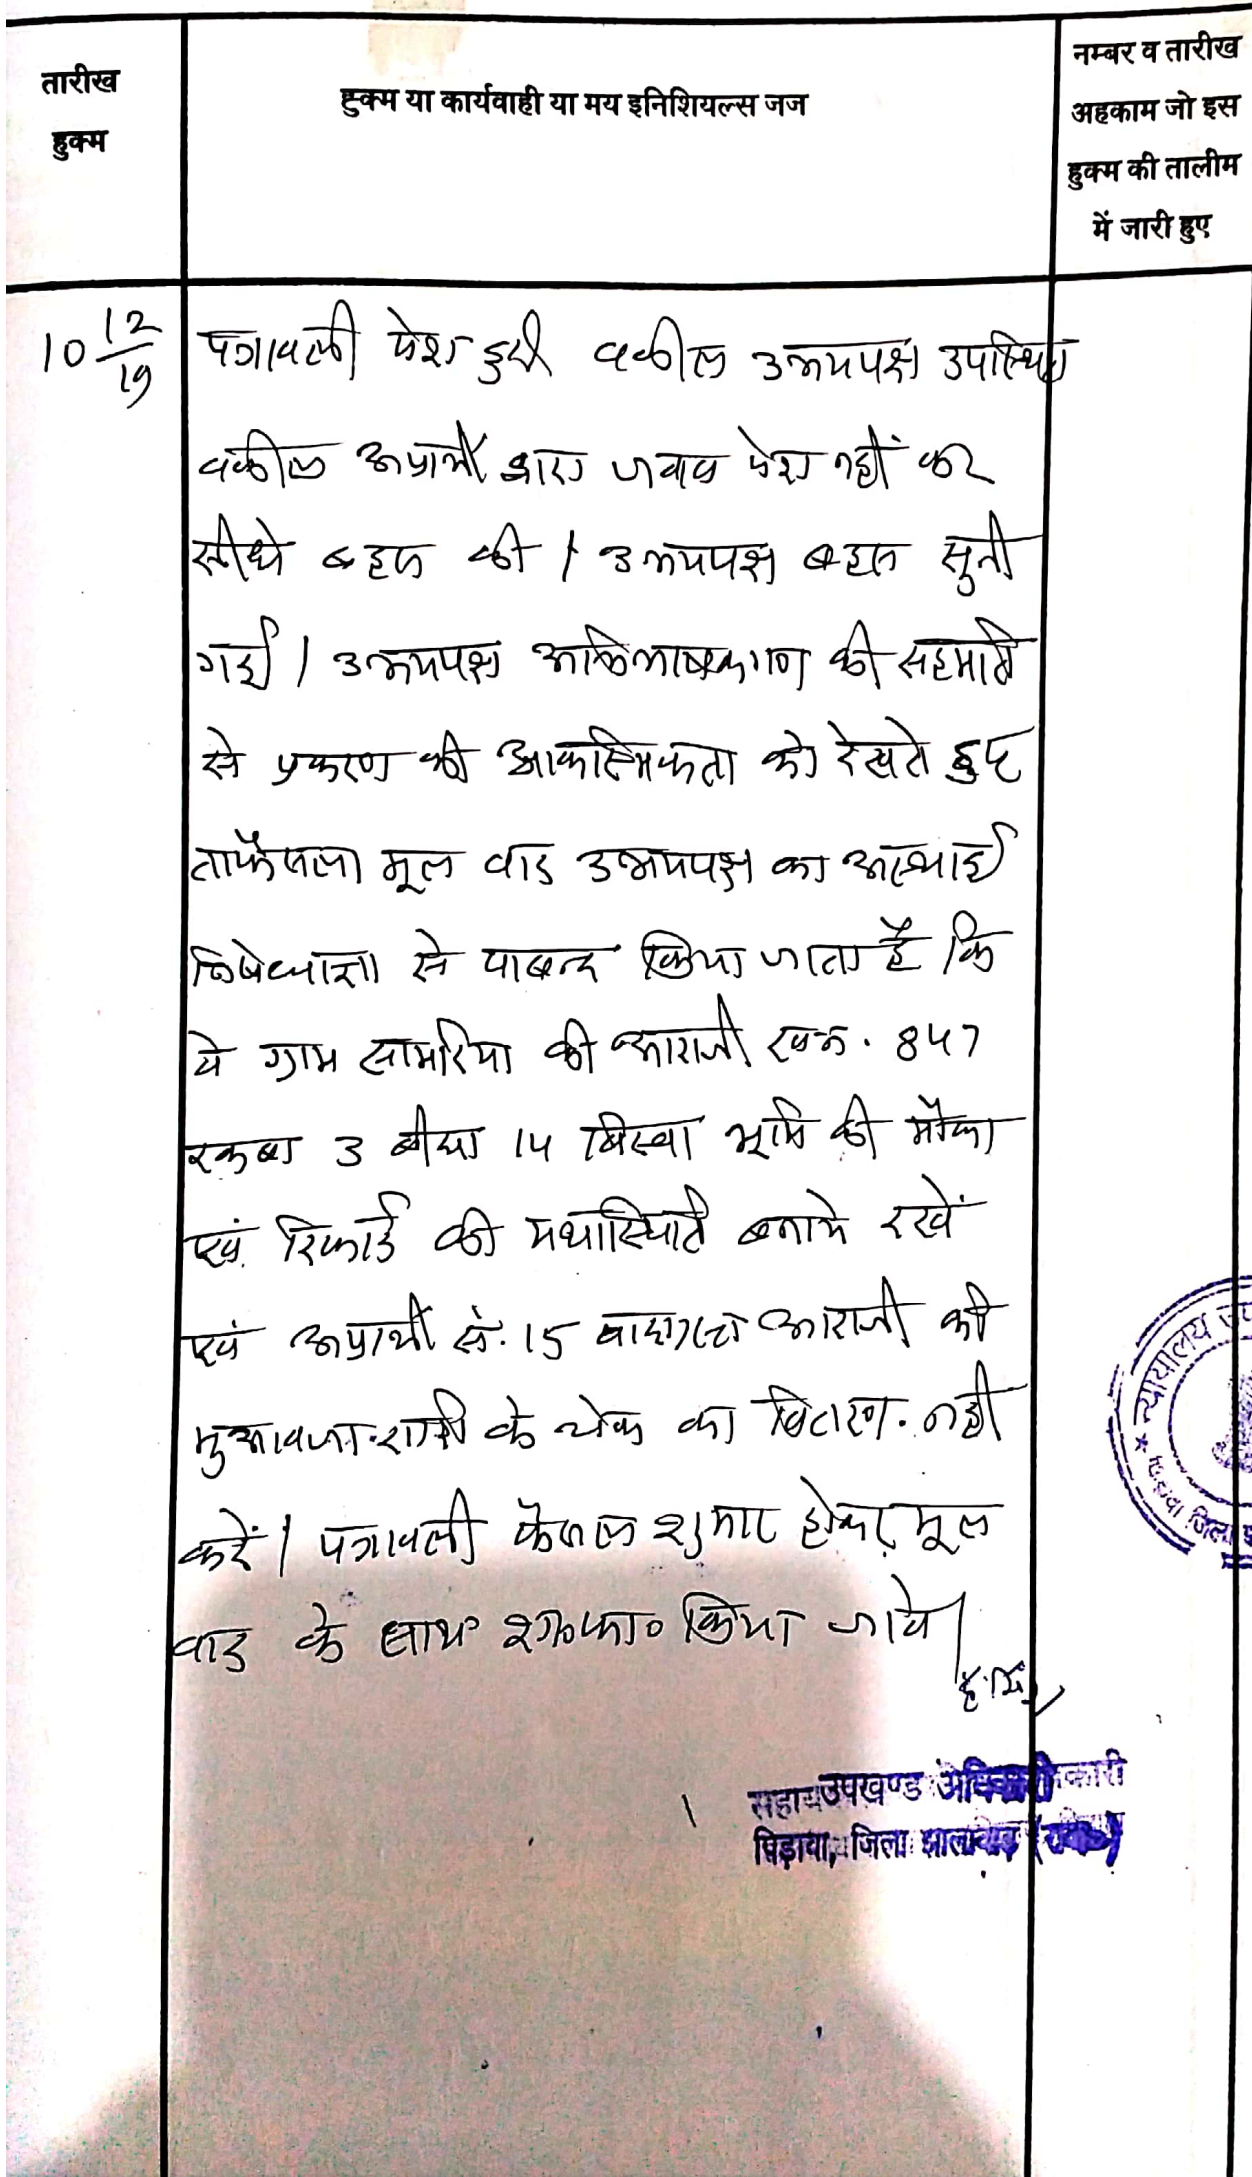 तारीख
हुक्म
हुक्म या कार्यवाही या मय इनिशियल्स जज
नम्बर व तारीख
अहकाम जो इस
हुक्म की तालीम
में जारी हुए
10 12/19
पत्रावली पेश हुयी वकील उभयपक्ष उपस्थित
वकील अप्रार्थी द्वारा जवाब पेश नहीं कर
सीधे बहस की । उभयपक्ष बहस सुनी
गई । उभयपक्ष अभिभाषकगण की सहमति
से प्रकरण की आकस्मिकता को देखते हुए
ताफैसला मूल वाद उभयपक्ष को अस्थाई
निषेधाज्ञा से पाबन्द किया जाता है कि
वे ग्राम सामरिया की आराजी ख.नं. 847
रकबा 3 बीघा 14 बिस्वा भूमि की मौका
एवं रिकार्ड की यथास्थिति बनाये रखें
एवं अप्रार्थी सं. 15 वादग्रस्त आराजी की
मुआवजा राशी के चेक का वितरण नहीं
करें । पत्रावली फैसल शुमार होकर मूल
वाद के साथ किया जावे ।
उपखण्ड अधिकारी
पिड़ावा, जिला झालावाड़ (राज०)
न्यायालय
पिड़ावा जिला